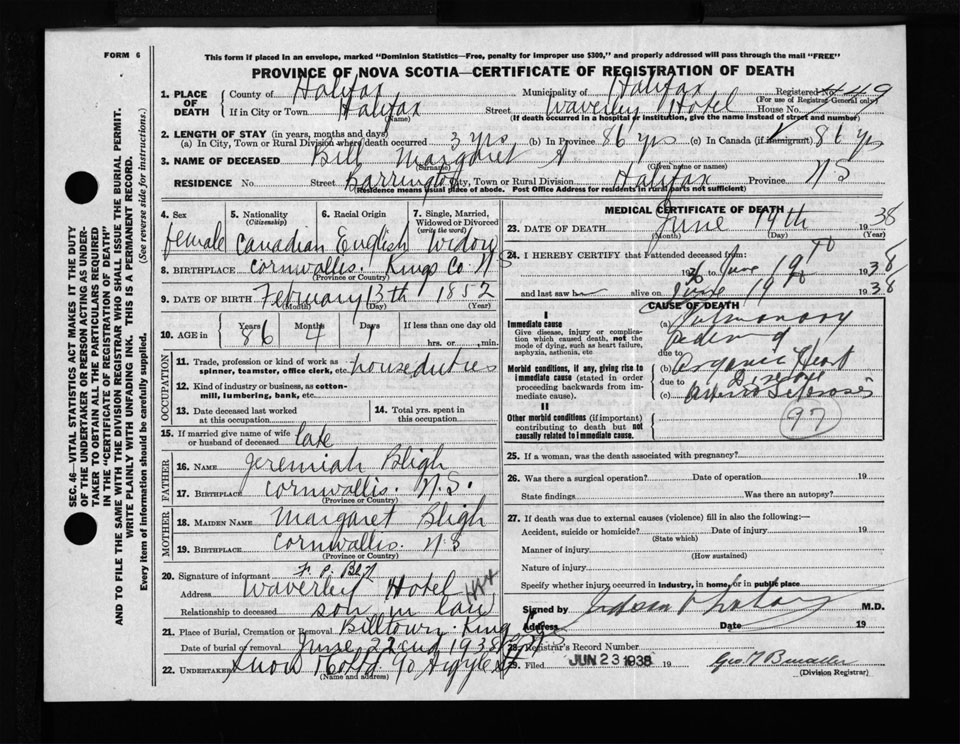 FORM 6
This form if placed in an envelope, marked "Dominion Statistics—Free, penalty for improper use $300," and properly addressed will pass through the mail "FREE"
PROVINCE OF NOVA SCOTIA—CERTIFICATE OF REGISTRATION OF DEATH
SEC. 46—VITAL STATISTICS ACT MAKES IT THE DUTY
OF THE UNDERTAKER OR PERSON ACTING AS UNDER-
TAKER TO OBTAIN ALL THE PARTICULARS REQUIRED
IN THE "CERTIFICATE OF REGISTRATION OF DEATH"
AND TO FILE THE SAME WITH THE DIVISION REGISTRAR WHO SHALL ISSUE THE BURIAL PERMIT.
WRITE PLAINLY WITH UNFADING INK. THIS IS A PERMANENT RECORD.
Every item of information should be carefully supplied. (See reverse side for instructions.)
1. PLACE OF DEATH County of Halifax Municipality of Halifax Registered No. 449
(For use of Registrar General only)
If in City or Town Halifax Street Waverley Hotel House No.
(Name) (If death occurred in a hospital or institution, give the name instead of street and number)
2. LENGTH OF STAY (in years, months and days)
(a) In City, Town or Rural Division where death occurred 3 yrs (b) In Province 86 yrs (c) In Canada (if immigrant) 86 yrs
3. NAME OF DECEASED Bill Margaret A
(Surname) (Given name or names)
RESIDENCE No. Street Barrington City, Town or Rural Division Halifax Province N S
(Residence means usual place of abode. Post Office Address for residents in rural parts not sufficient)
4. Sex 5. Nationality (Citizenship) 6. Racial Origin 7. Single, Married, Widowed or Divorced (write the word)
female Canadian English Widow
8. BIRTHPLACE Cornwallis. Kings Co. N S
(Province or Country)
9. DATE OF BIRTH February 13th 1852
(Month) (Day) (Year)
10. AGE in Years Months Days If less than one day old
86 4 hrs. or min.
OCCUPATION
11. Trade, profession or kind of work as spinner, teamster, office clerk, etc. house duties
12. Kind of industry or business, as cotton-mill, lumbering, bank, etc.
13. Date deceased last worked at this occupation 14. Total yrs. spent in this occupation
15. If married give name of wife or husband of deceased late
FATHER
16. NAME Jeremiah Bligh
17. BIRTHPLACE Cornwallis. N.S.
(Province or Country)
MOTHER
18. MAIDEN NAME Margaret Bligh
19. BIRTHPLACE Cornwallis. N S
(Province or Country)
20. Signature of informant F. P.
Address Waverley Hotel Hfx
Relationship to deceased son in law
21. Place of Burial, Cremation or Removal Billtown. Kings Co
Date of burial or removal June 22nd 1938
22. UNDERTAKER Snow & Co Ltd 90 Argyle St
(Name and address)
MEDICAL CERTIFICATE OF DEATH
23. DATE OF DEATH June 19th 1938
(Month) (Day) (Year)
24. I HEREBY CERTIFY that I attended deceased from:
19 to June 19th 1938
and last saw her alive on June 19th 1938
CAUSE OF DEATH
I
Immediate cause
Give disease, injury or complication which caused death, not the mode of dying, such as heart failure, asphyxia, asthenia, etc
(a) Pulmonary
Oedema
due to
Morbid conditions, if any, giving rise to immediate cause (stated in order proceeding backwards from immediate cause).
(b) Organic Heart
due to Disease
(c) Arterio Sclerosis
II
Other morbid conditions (if important) contributing to death but not causally related to immediate cause.
97
25. If a woman, was the death associated with pregnancy?
26. Was there a surgical operation? Date of operation 19
State findings Was there an autopsy?
27. If death was due to external causes (violence) fill in also the following:—
Accident, suicide or homicide? Date of injury 19
(State which)
Manner of injury
(How sustained)
Nature of injury
Specify whether injury occurred in industry, in home, or in public place
Signed by M.D.
Address Date 19
28. Registrar's Record Number
29. Filed JUN 23 1938 19
(Division Registrar)